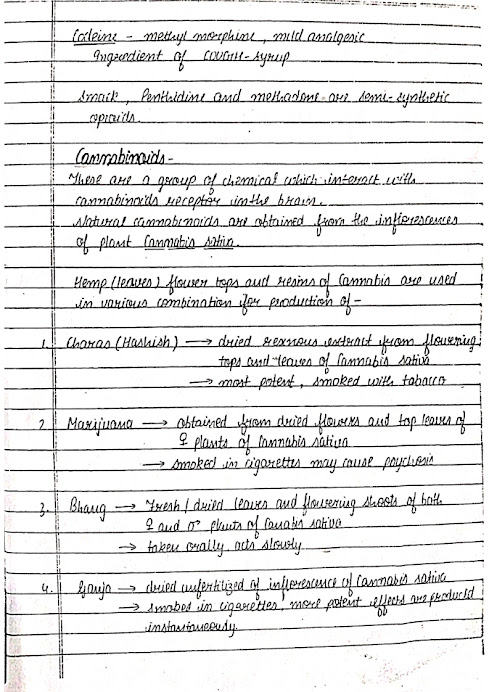 Codeine - methyl morphine, mild analgesic
ingredient of COUGH-syrup
Smack, Penthidine and methadone are semi-synthetic
opioids.
Cannabinoids -
These are a group of chemical which interact with
cannabinoids receptor in the brain.
Natural cannabinoids are obtained from the inflorescences
of plant Cannabis sativa.
Hemp (leaves) flower tops and resins of Cannabis are used
in various combination for production of -
1. Charas (Hashish) → dried resinous extract from flowering
tops and leaves of Cannabis sativa
→ most potent, smoked with tobacco
2. Marijuana → obtained from dried flowers and top leaves of
♀ plants of Cannabis sativa
→ smoked in cigarettes may cause psychosis
3. Bhang → Fresh / dried leaves and flowering shoots of both
♀ and ♂ plants of Canabis sativa
→ taken orally, acts slowly
4. Ganja → dried unfertilized of inflorescence of Cannabis sativa
→ smokes in cigarettes, more potent effects are produced
instantaneously.